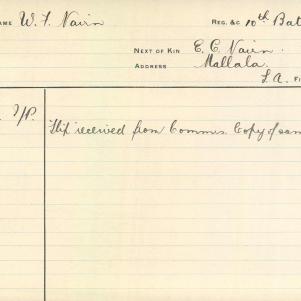 AME W. F. Nairn REG. &C. 10th Bat
NEXT OF KIN E. C. Nairn.
ADDRESS Mallala.
S. A. FI
7/P.
Slip received from Commrs. Copy of sam